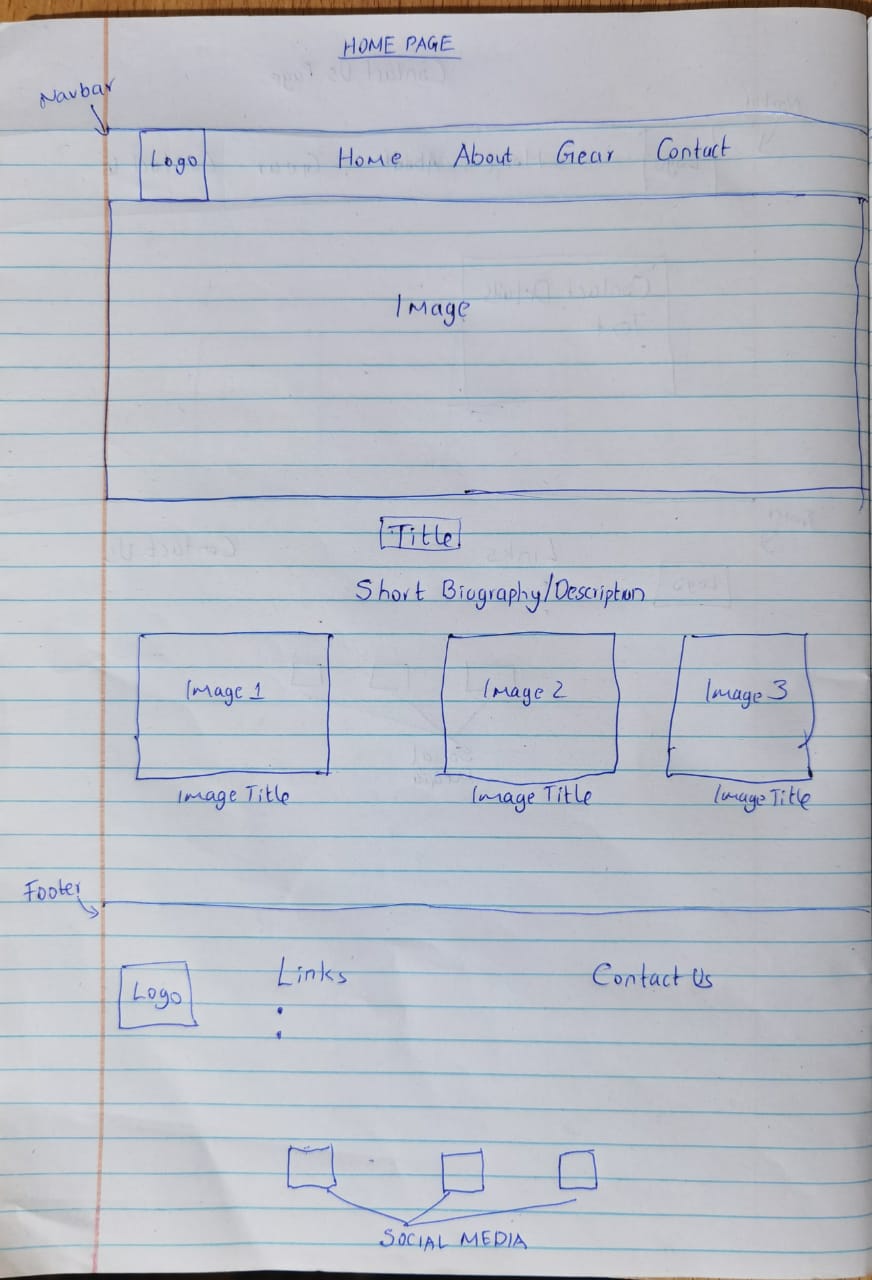 HOME PAGE
Navbar
Logo Home About Gear Contact
Image
Title
Short Biography/Description
Image 1 Image 2 Image 3
Image Title Image Title Image Title
Footer
Logo Links Contact Us
SOCIAL MEDIA